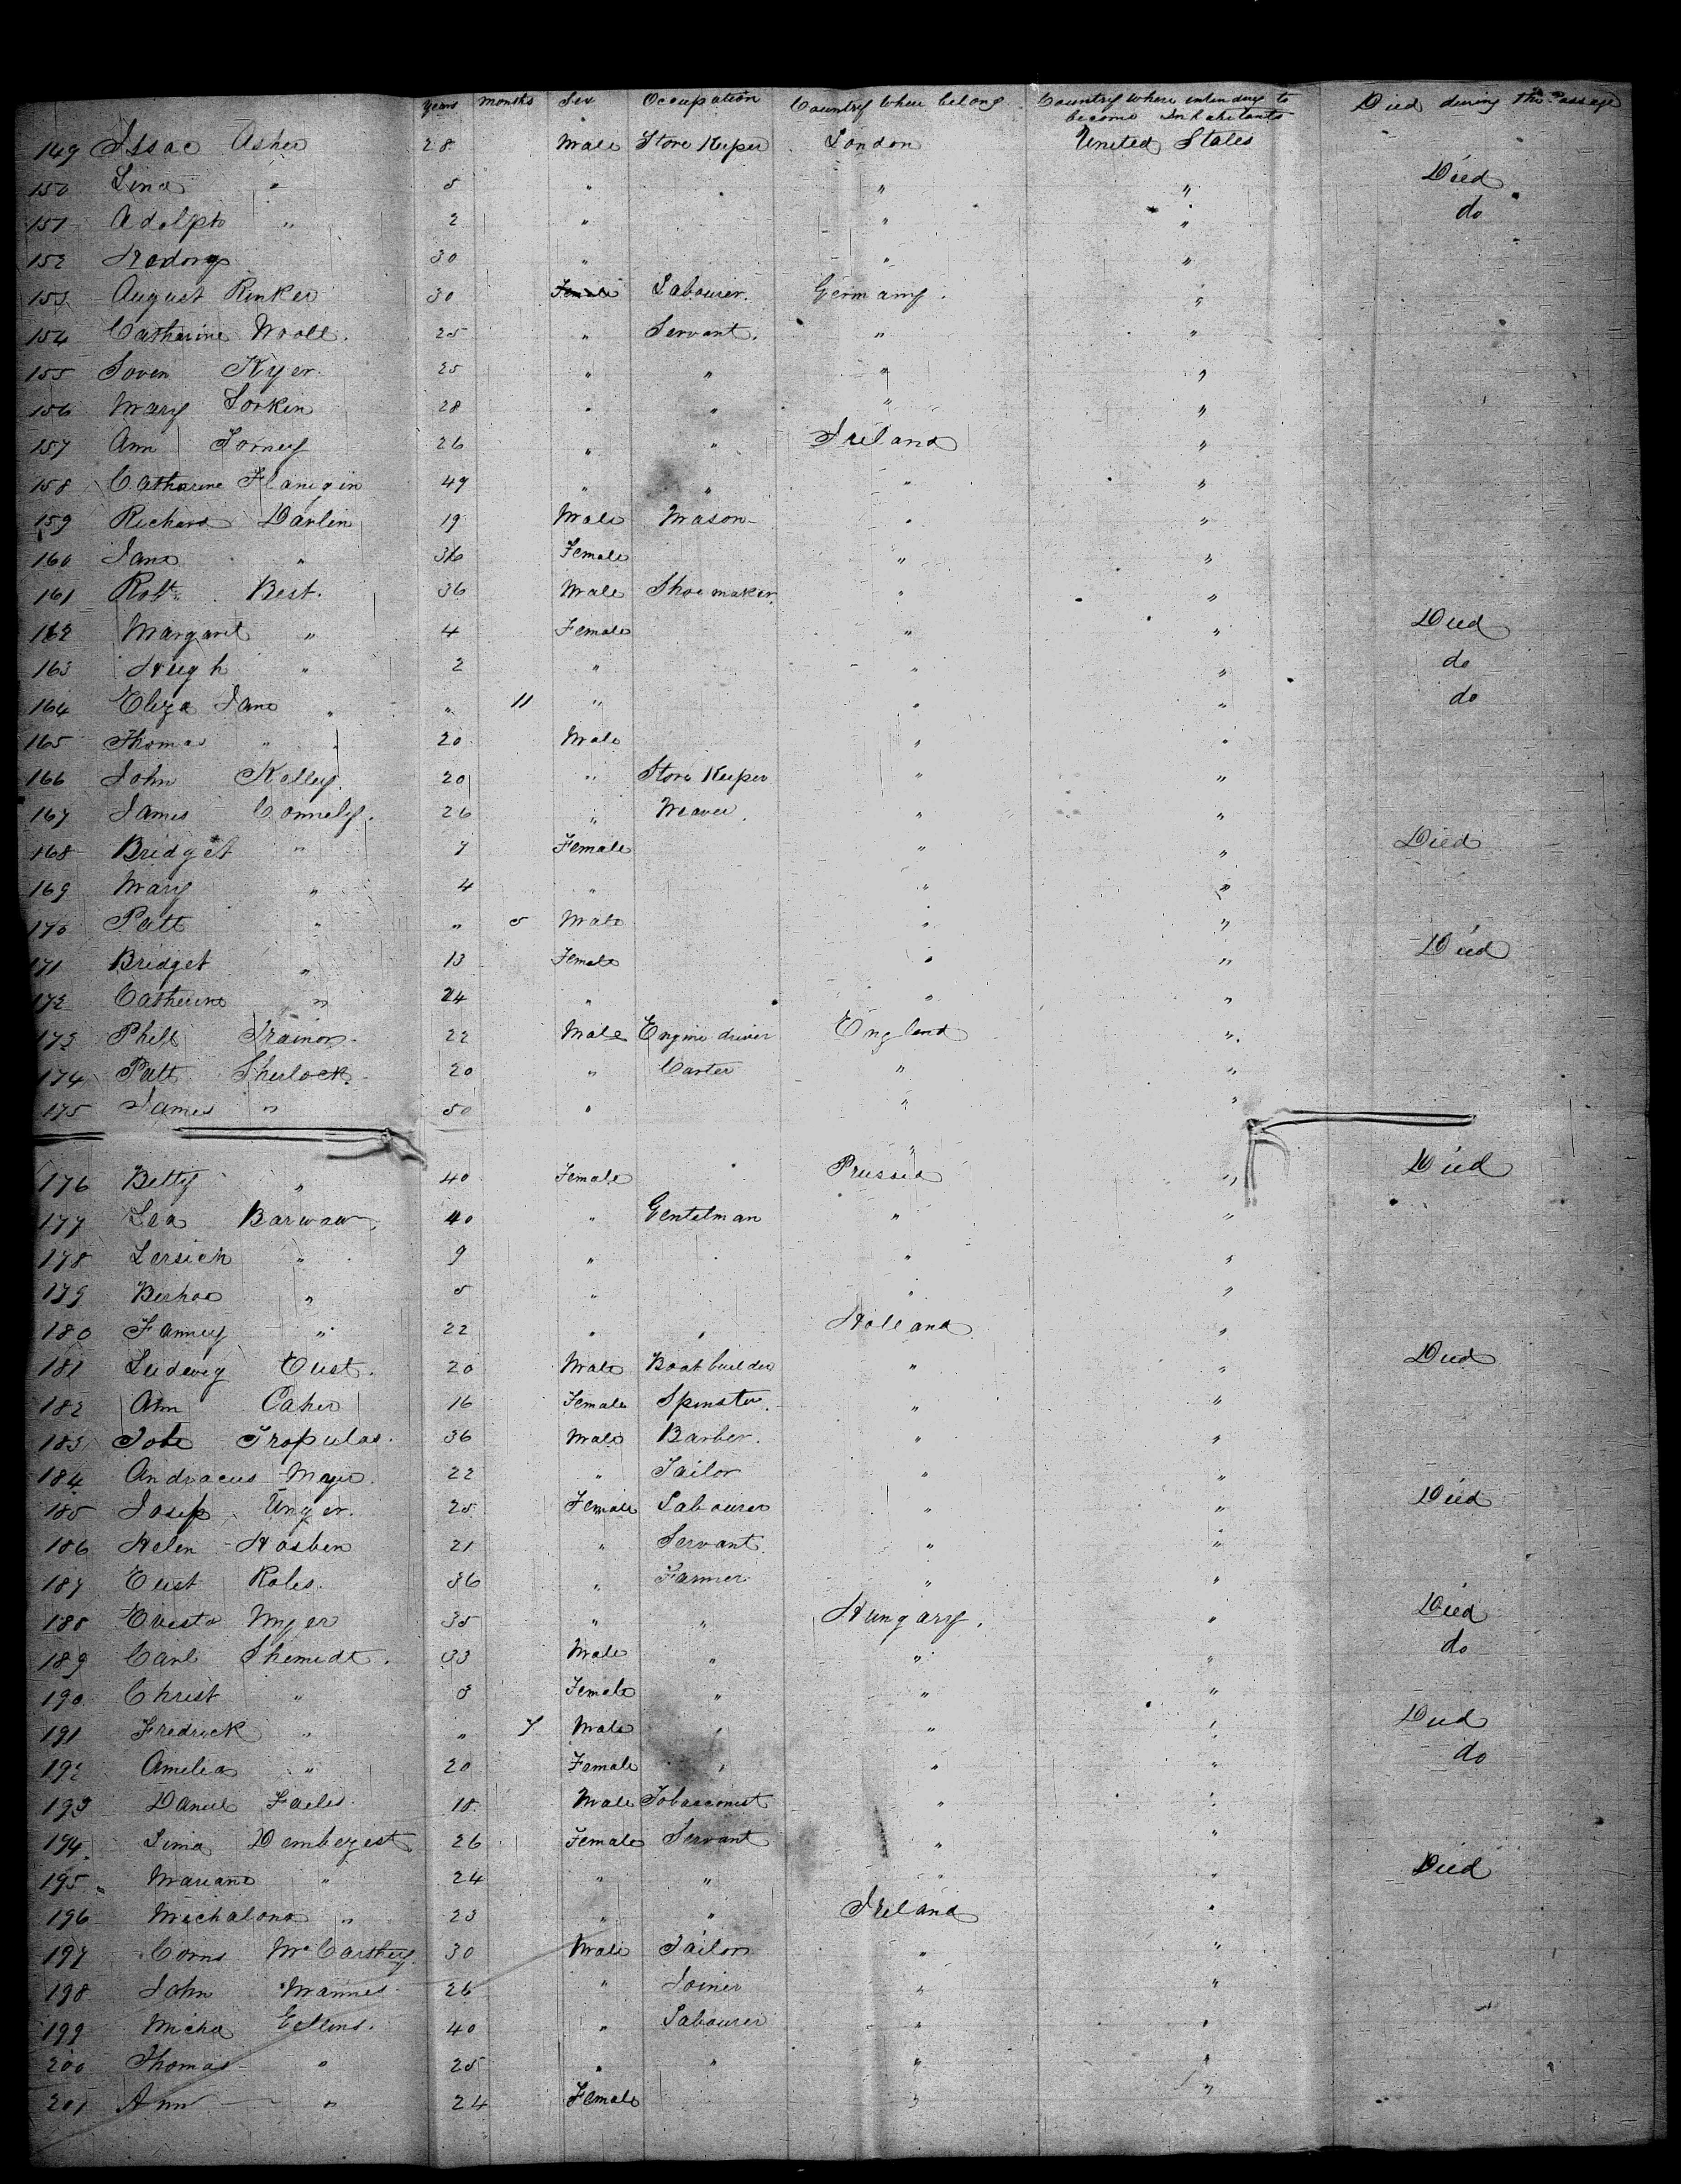 years months Sex Occupation Country where belong Country where intending to become Inhabitants Died during the Passage
149 Issac Asher 28 Male Store Keeper London United States
150 Lina " 5 " " " Died
151 Adolph " 2 " " " do
152 30 " " "
153 August Rinker 30 Female Labourer. Germany. "
154 Catharine Wooll. 25 " Servant. " "
155 Soven Kyer. 25 " " " "
156 Mary Lorkin 28 " " " "
157 Ann Torney 26 " " Ireland "
158 Catharine Flanigin 49 " " " "
159 Richard Darlin 19 Male Mason " "
160 Jane " 36 Female " "
161 Robt. Best. 36 Male Shoemaker. " "
162 Margaret " 4 Female " " Died
163 Hugh " 2 " " " do
164 Eliza Jane " " 11 " " " do
165 Thomas " 20 Male " "
166 John Kelley. 20 " Store Keeper " "
167 James Connely. 26 " Weaver. " "
168 Bridget " 7 Female " " Died
169 Mary " 4 " " "
170 Patt " " 5 Male " "
171 Bridget " 13 Female " " Died
172 Catherine " 24 " " "
173 Phill Trainor. 22 Male Engine driver England "
174 Patt Sherlock. 20 " Carter " "
175 James " 50 " " "
176 Betty " 40 Female Prussia " Died
177 Lea Barwaw. 40 " Gentelman " "
178 Lersich " 9 " " "
179 Berhao " 5 " " "
180 Fanney " 22 " " Holland "
181 Ludewig Eust. 20 Male Boat builder " " Died
182 Ann Caher 16 Female Spinster. " "
183 Tropulas. 36 Male Barber. " "
184 Andracus Mayer. 22 " Tailor " "
185 Josep Unger. 25 Female Labourer " " Died
186 Helen Hosben 21 " Servant. " "
187 Eust Roles. 36 " Farmer " "
188 Myer 35 " " Hungary. " Died
189 Carl Shemidt. 33 Male " " " do
190 Christ " 3 Female " " "
191 Fredrick " " 7 Male " " " Died
192 Amelia " 20 Female " " " do
193 Daniel Failes. 18 Male Tobacconist " "
194 Lima Dembezest 26 Female Servant " "
195 Mariano " 24 " " " " Died
196 Michalona " 23 " " Ireland "
197 Corns McCarthey. 30 Male Tailor " "
198 John Mannes 26 " Joiner " "
199 Micha Eellens. 40 " Labourer " "
200 Thomas " 25 " " " "
201 Ann " 24 Female " "